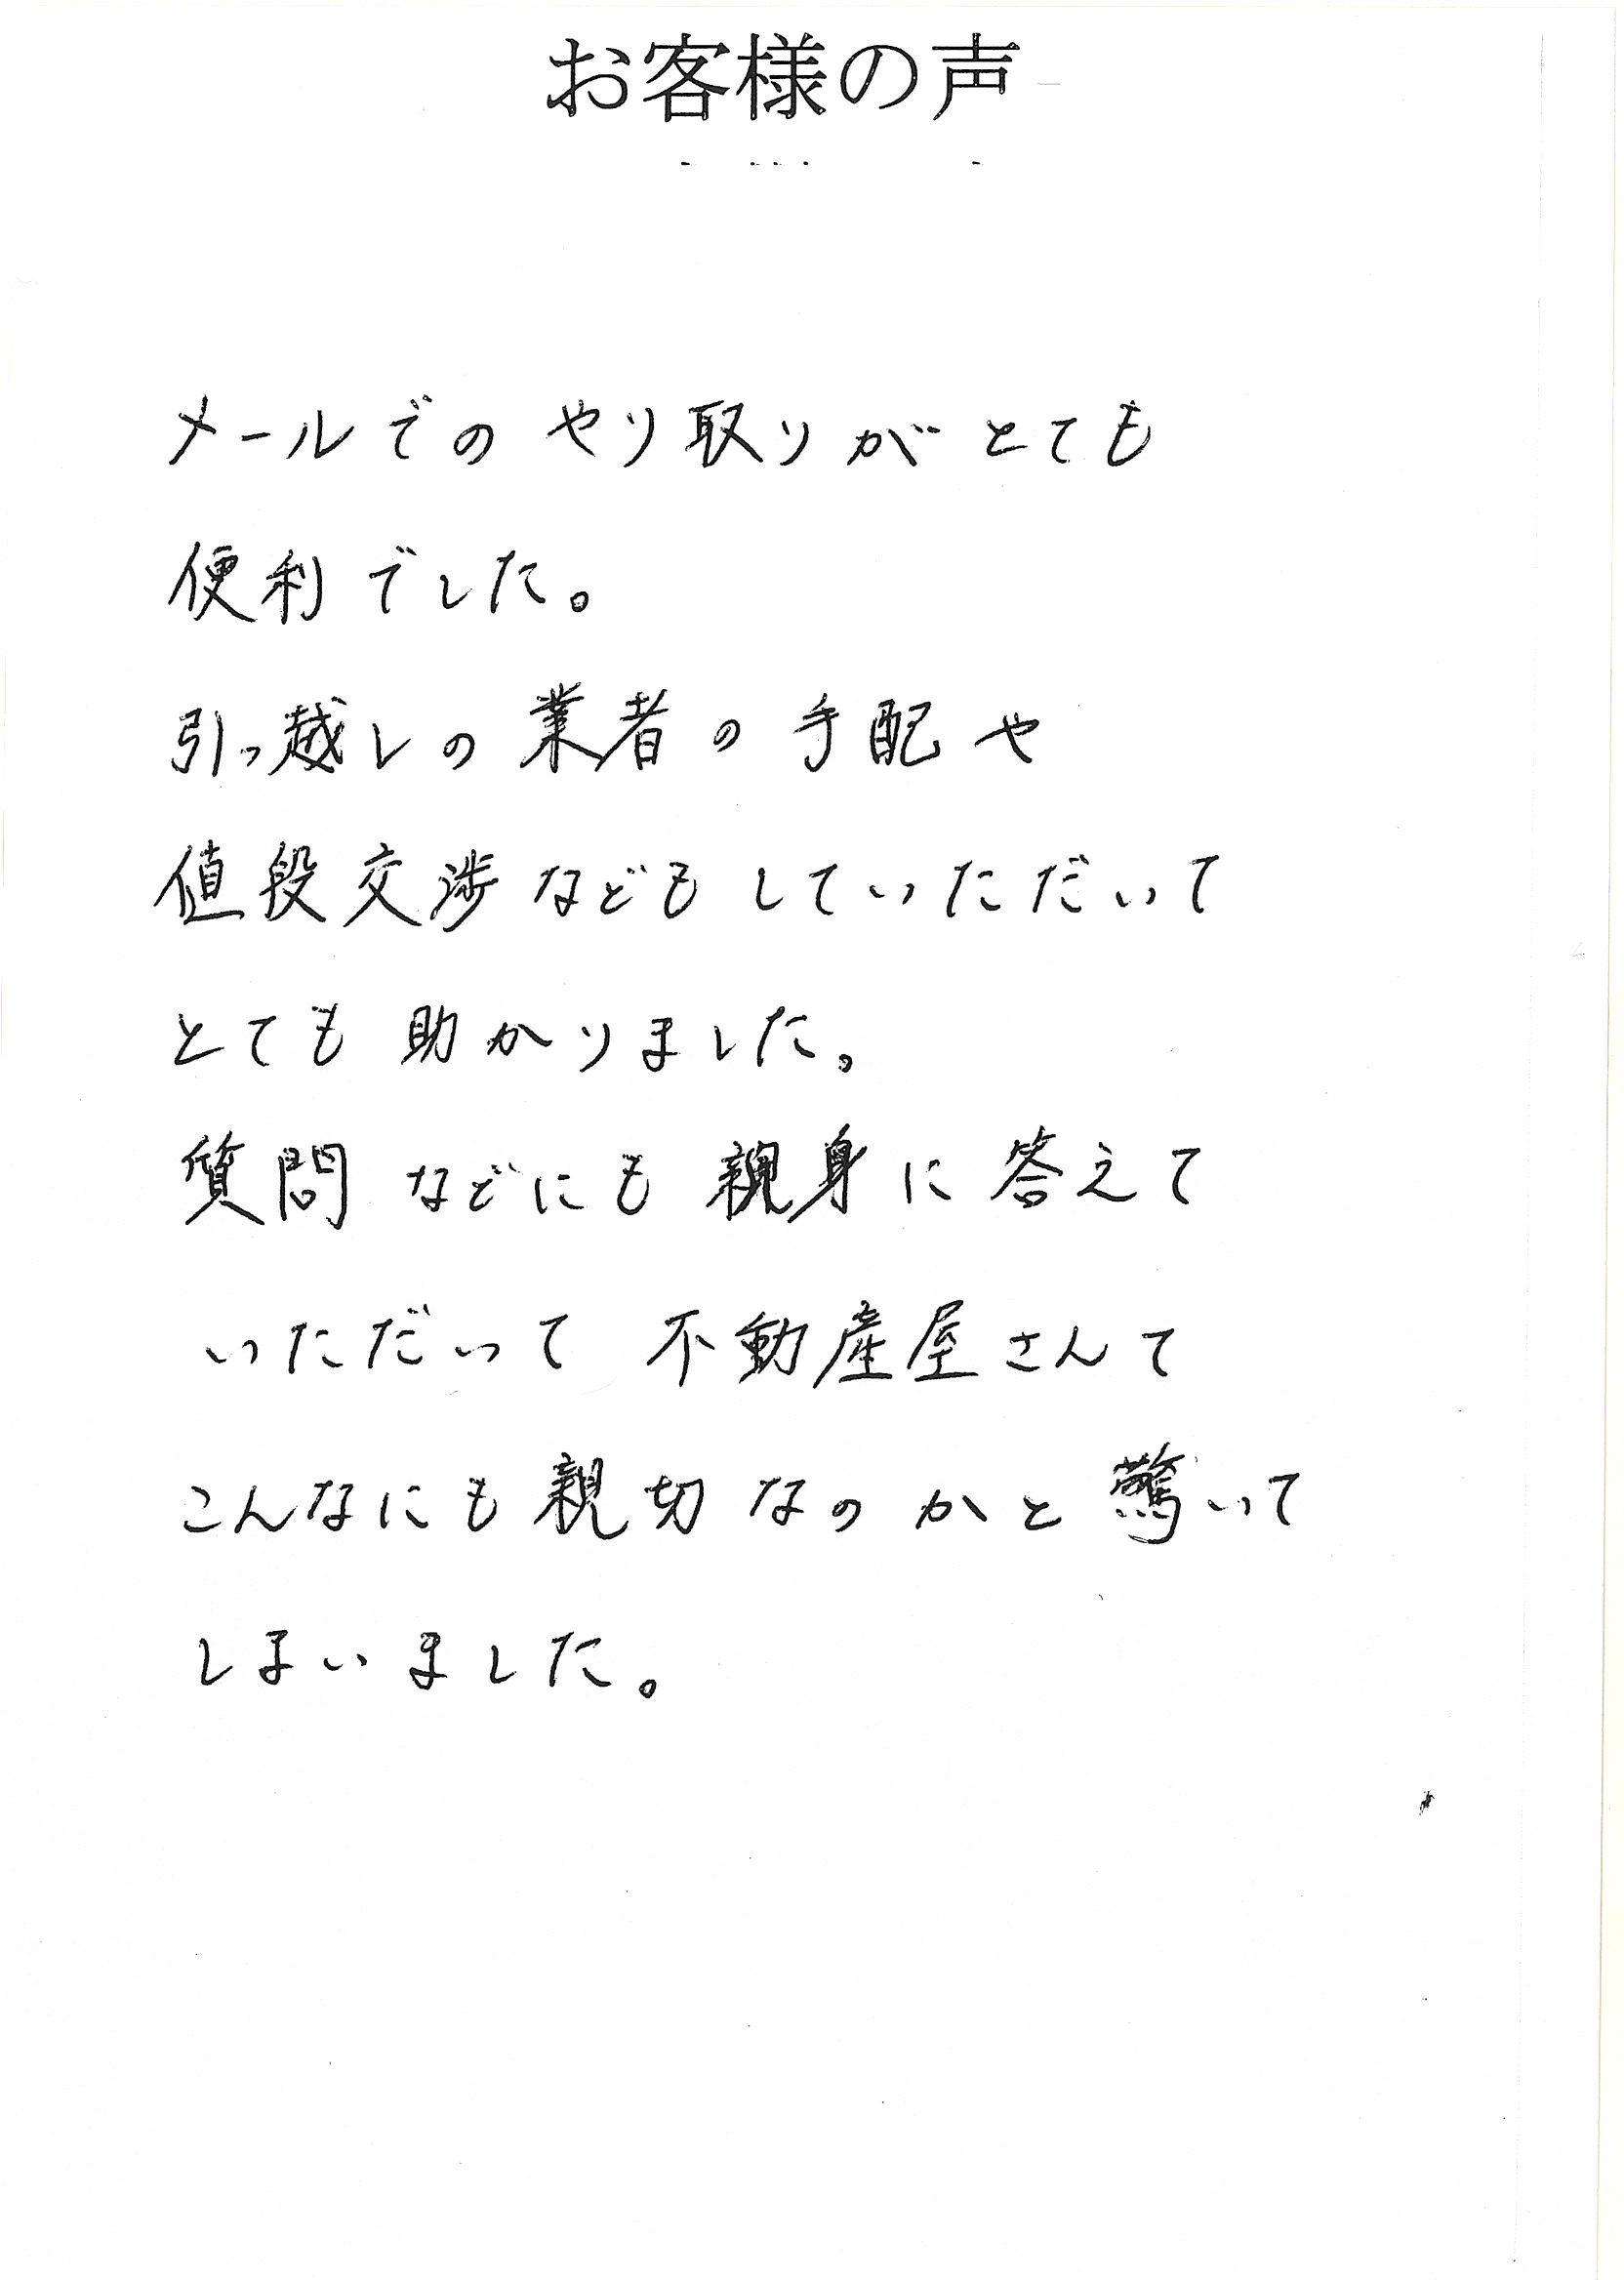 お客様の声
メールでのやり取りがとても
便利でした。
引っ越しの業者の手配や
値段交渉などもしていただいて
とても助かりました。
質問などにも親身に答えて
いただいて不動産屋さんて
こんなにも親切なのかと驚いて
しまいました。